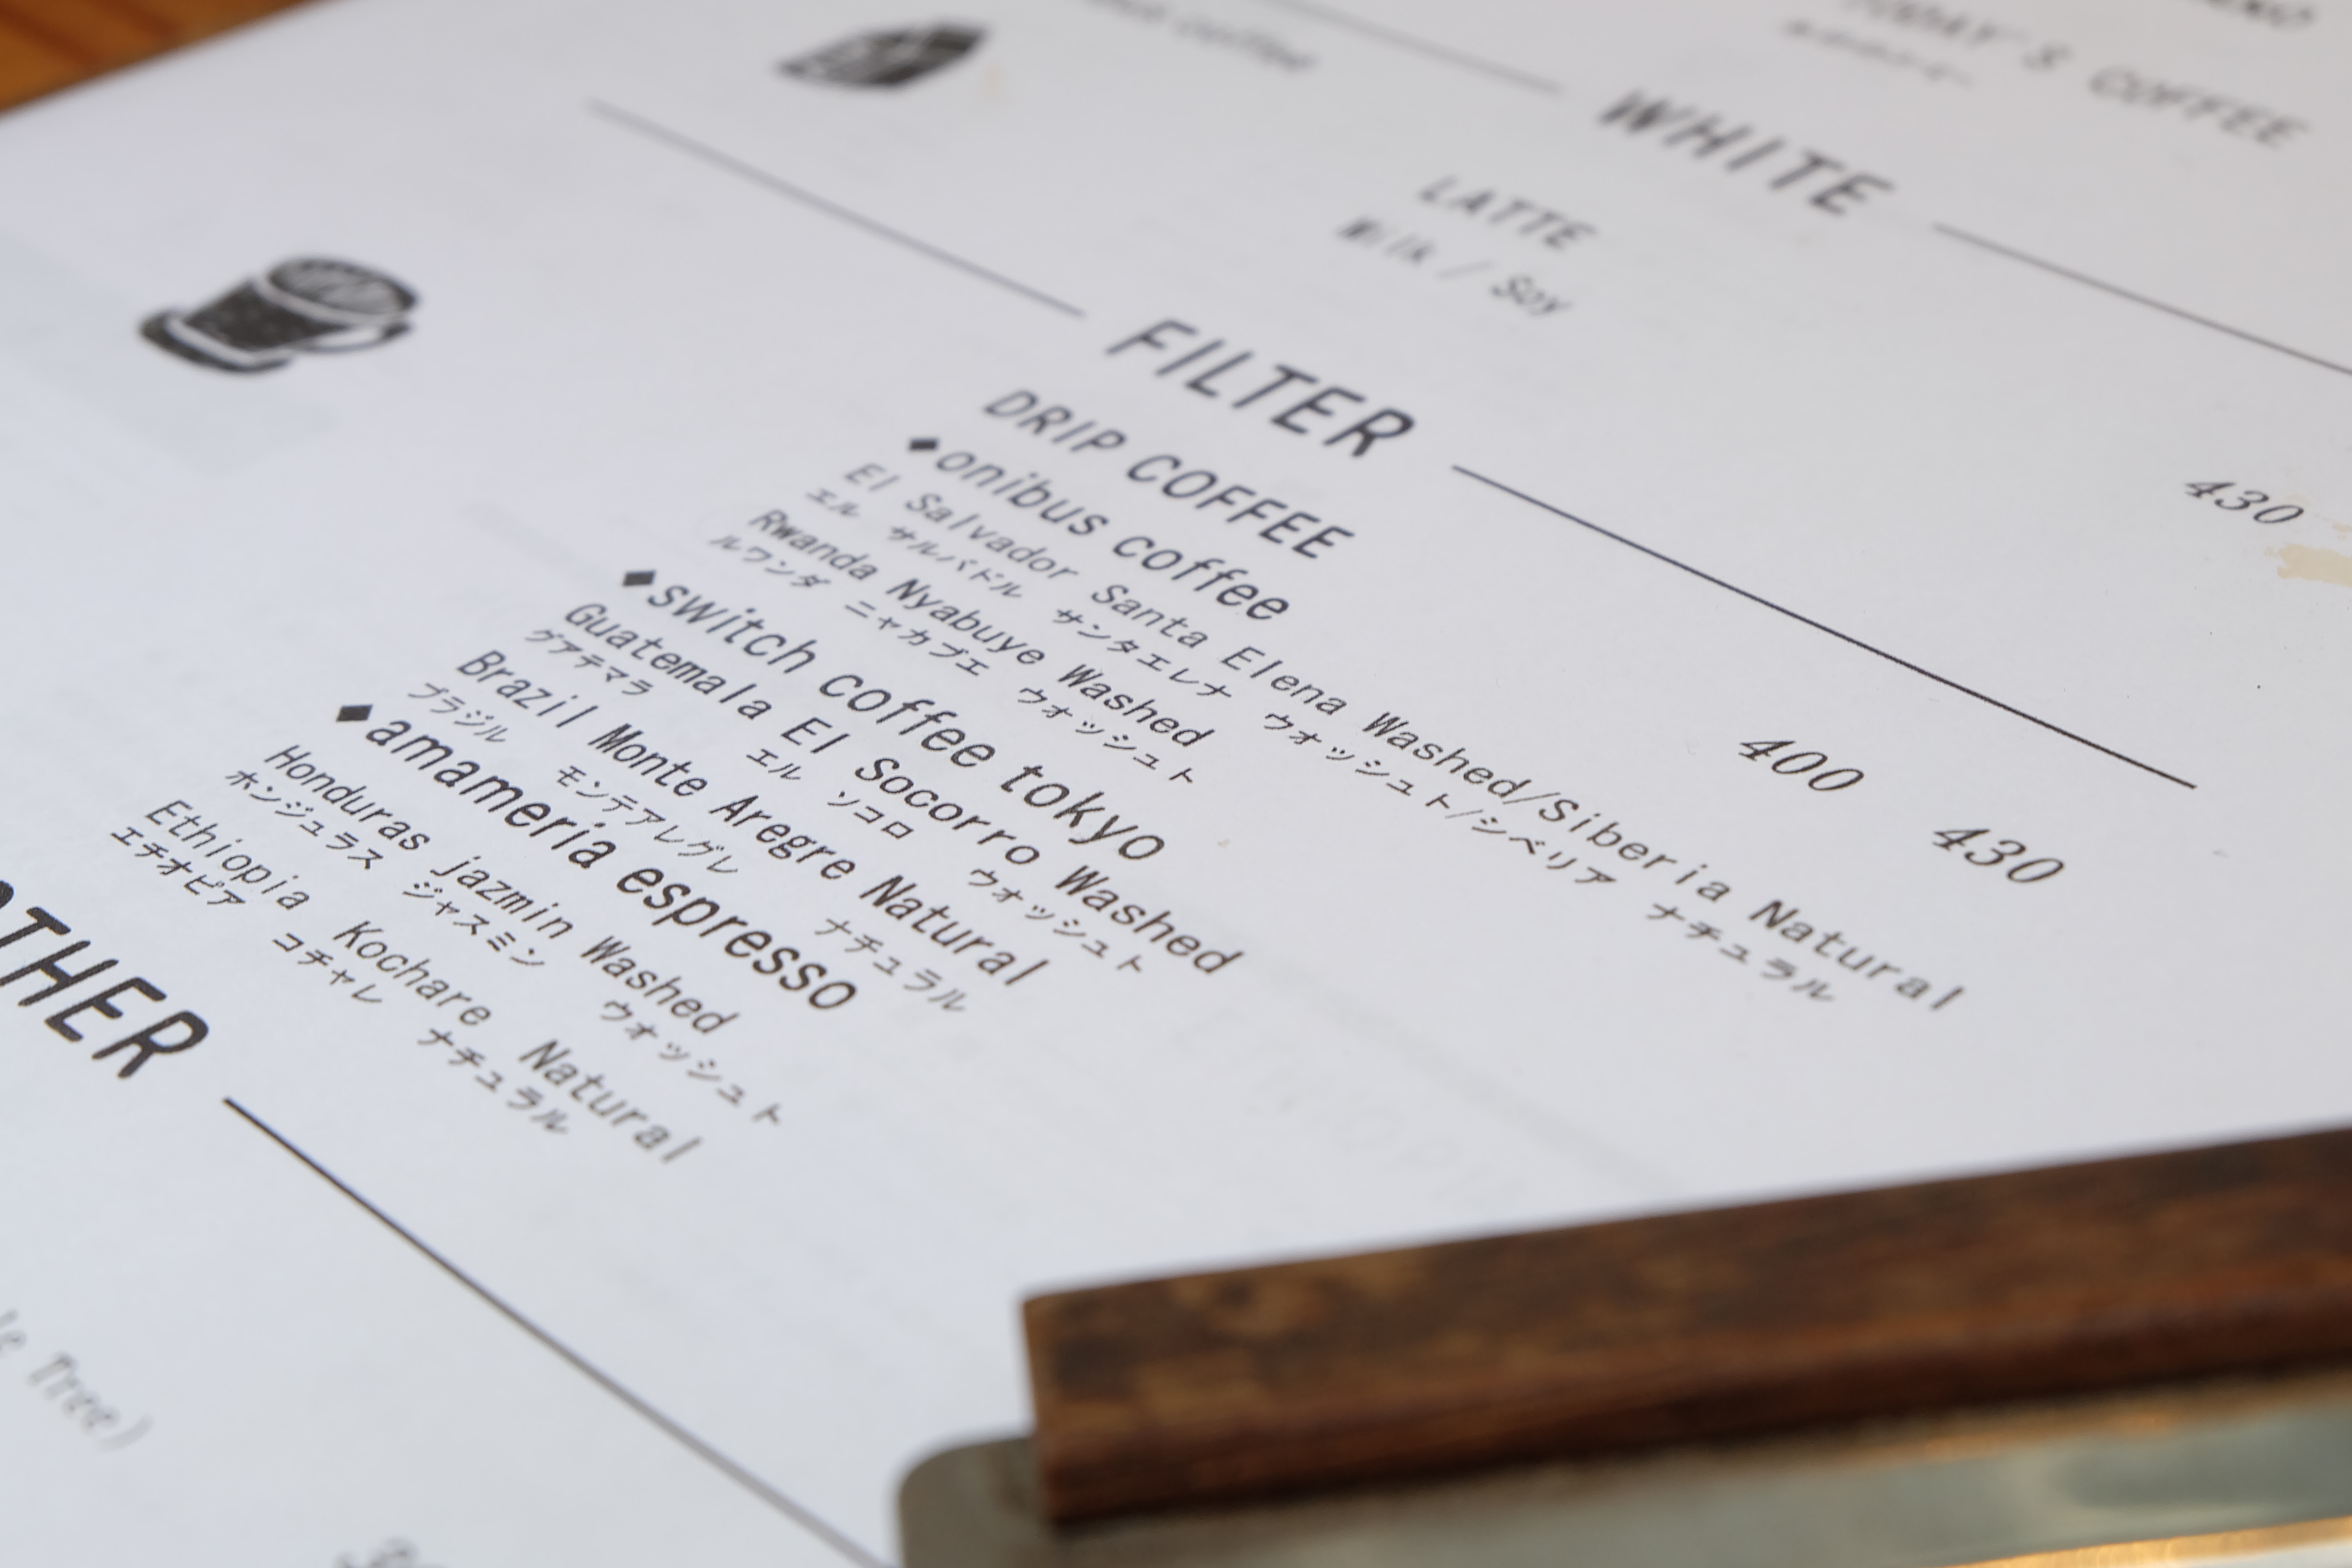 TODAY'S COFFEE
coffee
WHITE
LATTE 430
Milk / Soy
FILTER
DRIP COFFEE 400 430
◆onibus coffee
El Salvador Santa Elena Washed/Siberia Natural
エル サルバドル サンタエレナ ウォッシュト/シベリア ナチュラル
Rwanda Nyabuye Washed
ルワンダ ニャカブエ ウォッシュト
◆switch coffee tokyo
Guatemala El Socorro Washed
グアテマラ エル ソコロ ウォッシュト
Brazil Monte Aregre Natural
ブラジル モンテアレグレ ナチュラル
◆amameria espresso
Honduras jazmin Washed
ホンジュラス ジャスミン ウォッシュト
Ethiopia Kochare Natural
エチオピア コチャレ ナチュラル
OTHER
Tree)